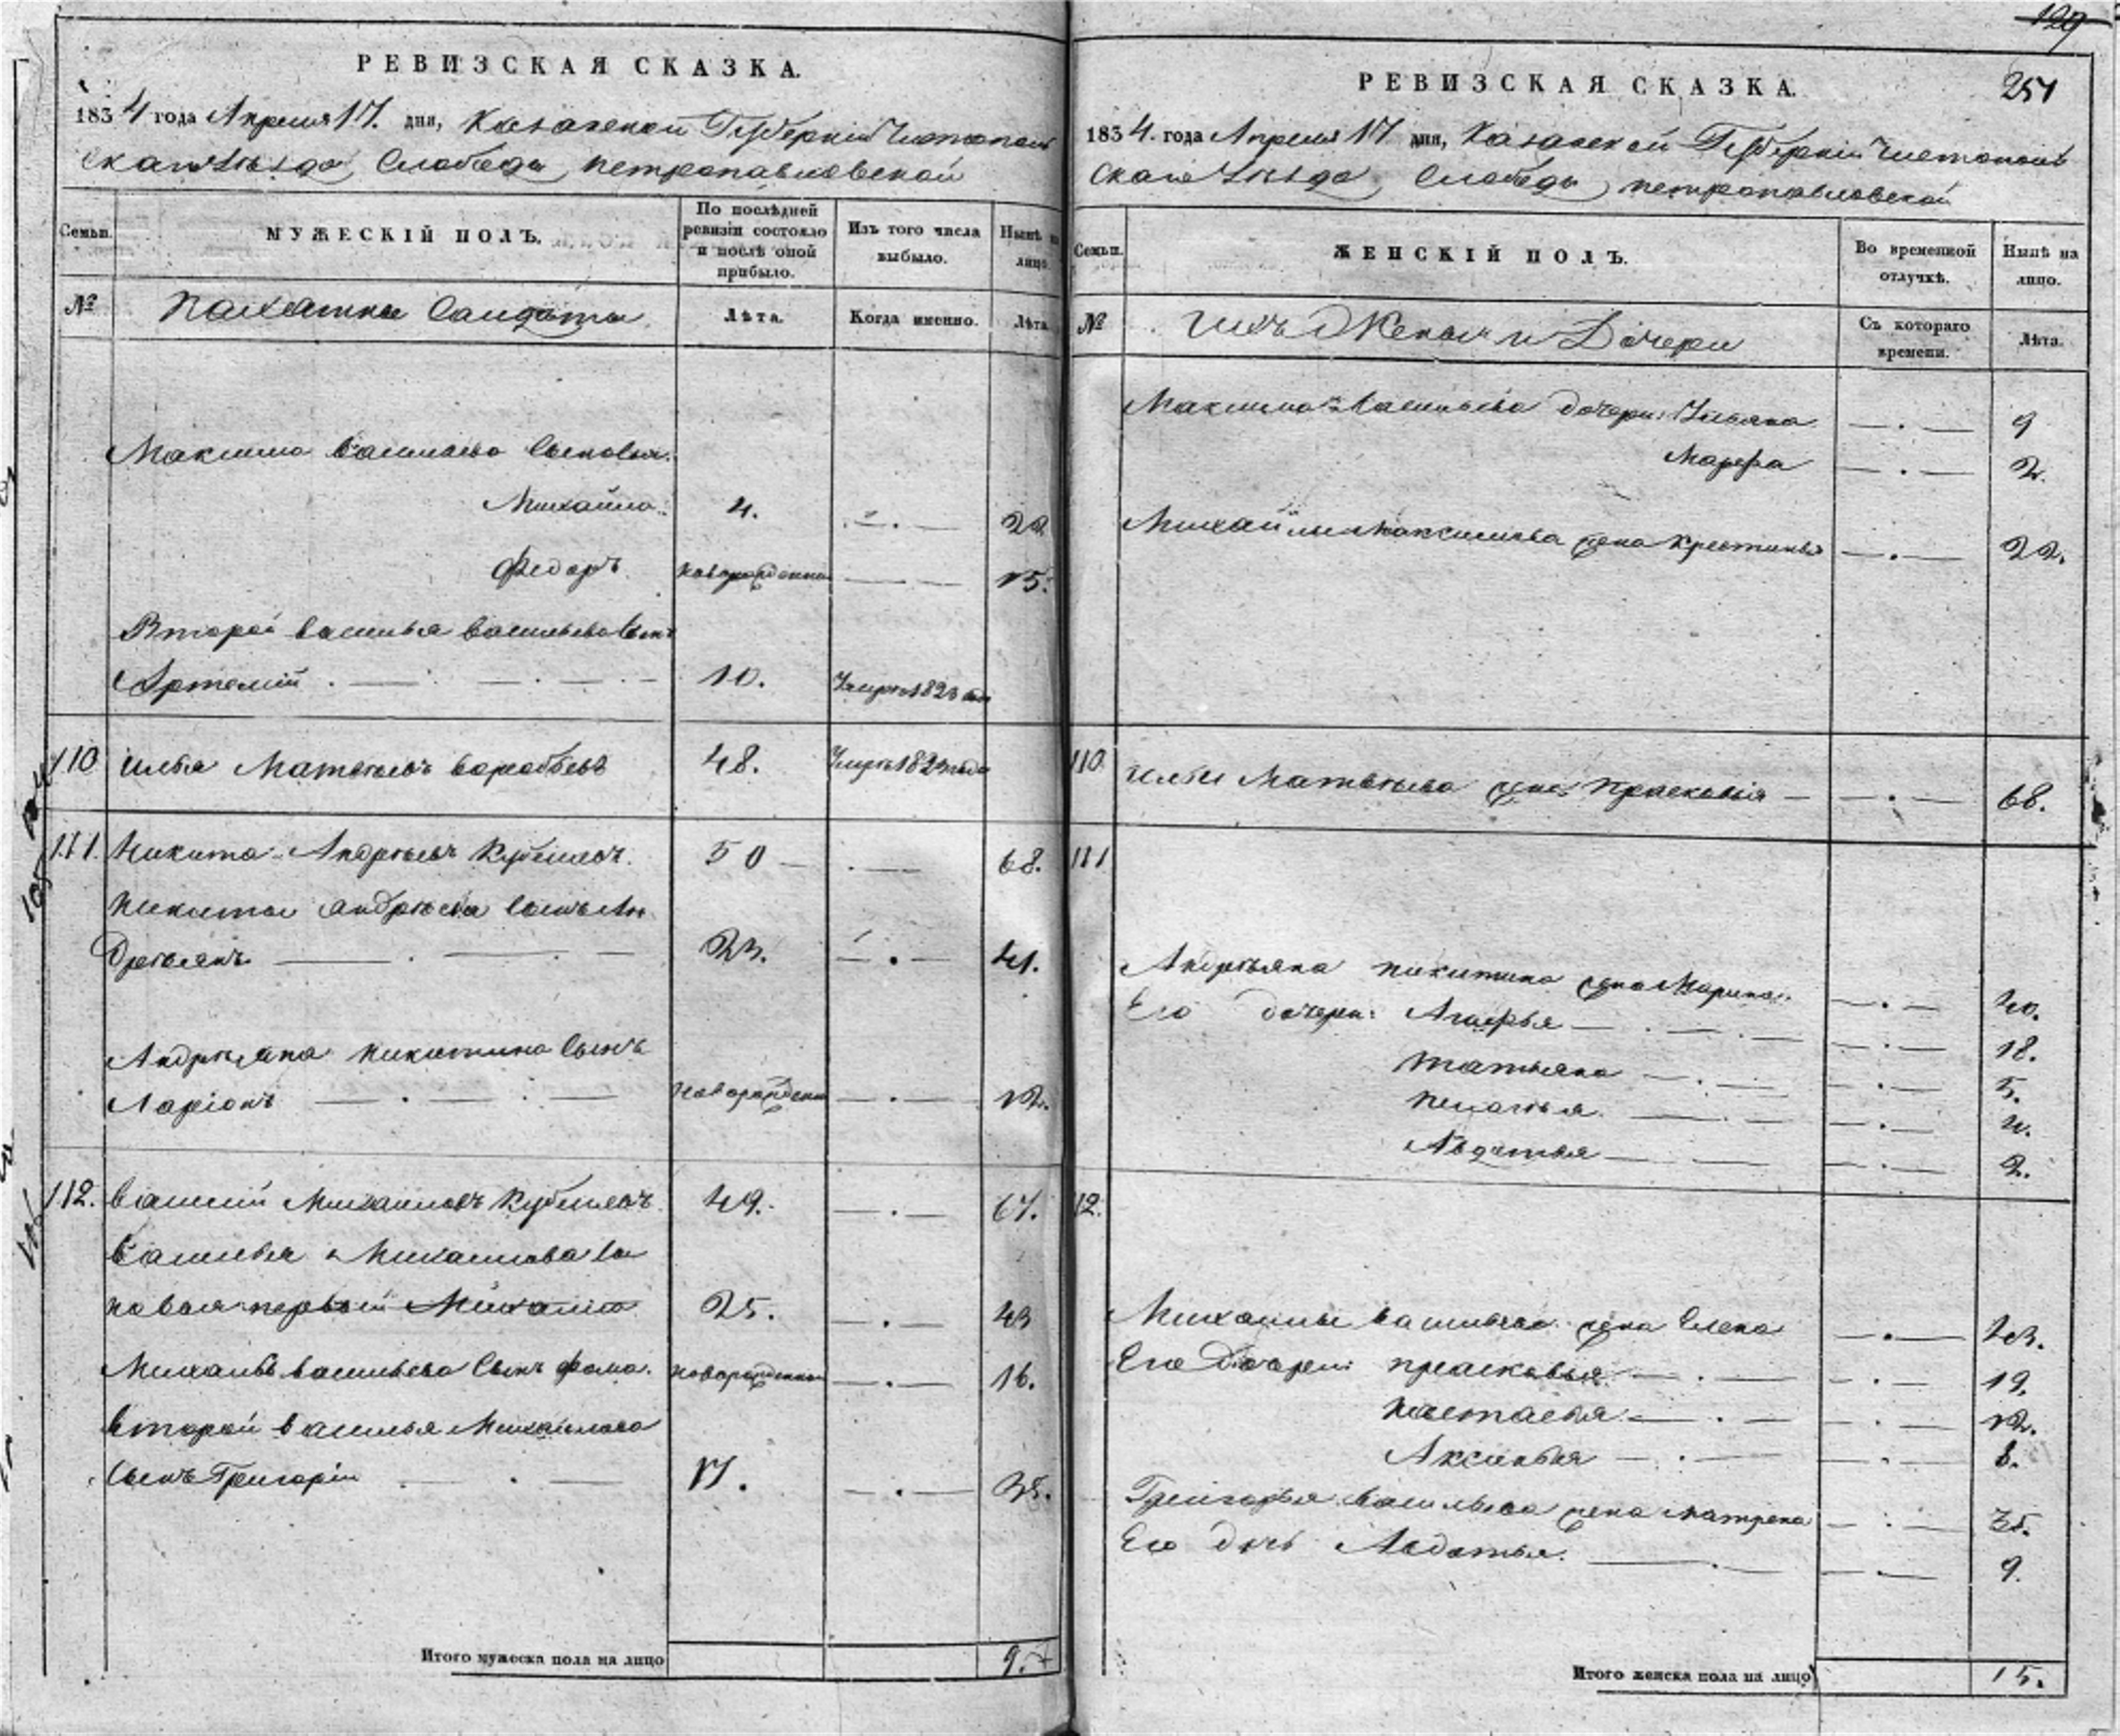 129
РЕВИЗСКАЯ СКАЗКА.
1834 года Апреля 17. дня, Казанской Губернiи Чистополь
скаго Уѣзда Слободы Петропавловской
Семьи.
МУЖЕСКІЙ ПОЛЪ.
По послѣдней ревизіи состояло и послѣ оной прибыло.
Изъ того числа выбыло.
Нынѣ на лицо.
№
Пахатные Солдаты
Лѣта.
Когда именно.
Лѣта.
Максима Васильева Сыновья.
Михайла 4. 22
Федоръ новорожденный 15.
Второй Василья Васильева Сынъ
Артемiй 10. Умеръ 1823 года
110 Илья Матвѣевъ Воробьевъ 48. Умеръ 1823 года
111. Никита Андрѣевъ Кубышевъ. 50 68.
Никиты Андрѣева Сынъ Ан
дрѣянъ 23. 41.
Андрѣяна Никитина Сынъ
Ларiонъ новорожденный 12.
112. Василiй Михайловъ Кубышевъ. 49. 67.
Василья Михайлова Сы
новья первый Михайло 25. 43
Михайлы Васильева Сынъ Фома. новорожденный 16.
Второй Василья Михайлова
Сынъ Григорiй 17. 35.
Итого мужеска пола на лицо 9.
РЕВИЗСКАЯ СКАЗКА.
251
1834. года Апреля 17 дня, Казанской Губернiи Чистополь
скаго Уѣзда Слободы Петропавловской
Семьи.
ЖЕНСКІЙ ПОЛЪ.
Во временной отлучкѣ.
Нынѣ на лицо.
№
Ихъ Жены и Дочери
Съ котораго времени.
Лѣта.
Максима Васильева дочери: Ульяна 9
Марефа 2.
Михайлы Максимова жена Крестинья 22.
110. Ильи Матвѣева жена Прасковiя 68.
111
Андрѣяна Никитина жена Марина. 40.
Его дочери: Агафья 18.
Татьяна 5.
Пелагѣя 4.
Авдотья 2.
112.
Михайлы Васильева жена Елена 43.
Его Дочери: Прасковья 19.
Настасья 12.
Аксинья 8.
Григорья Васильева жена Матрена 35.
Его дочь Авдотья. 9.
Итого женска пола на лицо 15.